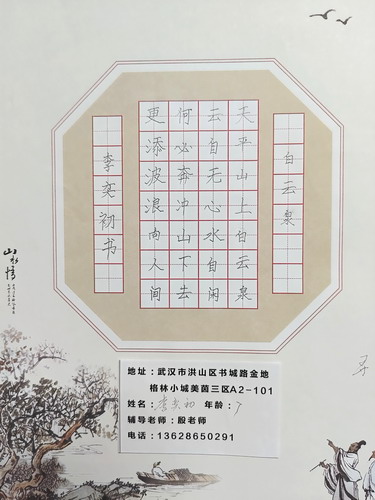 白云泉
天平山上白云泉
云自无心水自闲
何必奔冲山下去
更添波浪向人间
李奕初书
山水情
地址：武汉市洪山区书城路金地
格林小城美茵三区A2-101
姓名：李奕初 年龄：7
辅导老师：殷老师
电话：13628650291